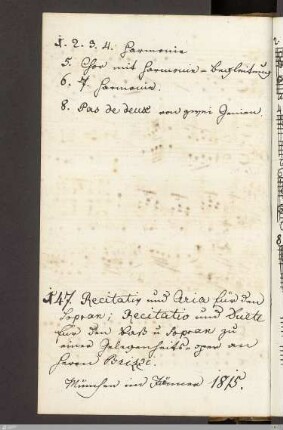 1. 2. 3. 4. Harmonie
5. Chor mit Harmonie-Begleitung
6. 7. Harmonie.
8. Pas de deux von zwei Genien.
147. Recitativ und Aria für den
Sopran; Recitativ und Duett
für den Baß u Sopran zu
einer Gelegenheits-oper an
Herrn Brizzi.
München im Januar 1815.